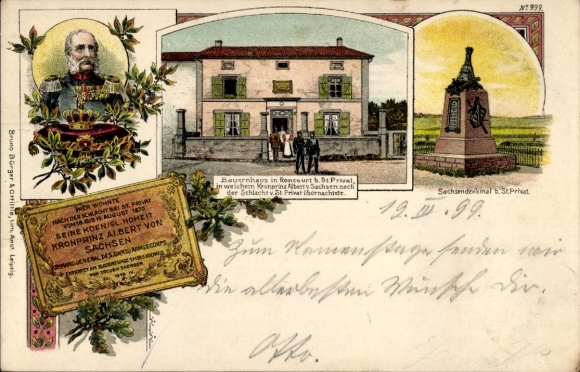 No. 999.
Bauernhaus in Roncourt b. St. Privat,
in welchem Kronprinz Albert v. Sachsen nach
der Schlacht v. St. Privat übernachtete.
Sachsendenkmal b. St. Privat.
HIER WOHNTE
NACH DER SCHLACHT BEI ST. PRIVAT
VOM 18. BIS 19. AUGUST 1870
SEINE KOENIGL. HOHEIT
KRONPRINZ ALBERT VON
SACHSEN
Bruno Bürger & Ottillie, Lith. Anst. Leipzig.
19. III. 99.
Zum Namenstage senden wir
die allerbesten Wünsche Dir.
Otto.